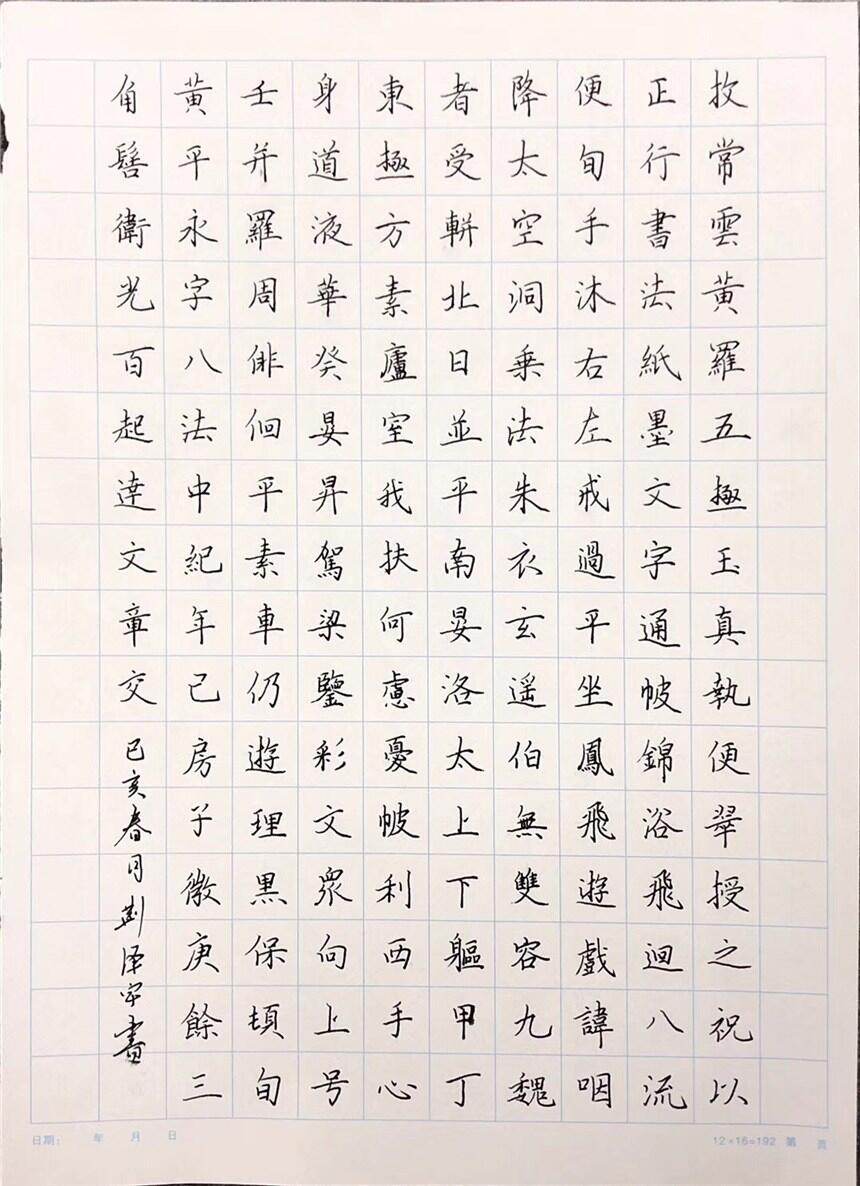 攼常雲黃羅五極玉真執便翠授之祝以
正行書法紙墨文字通帔錦浴飛迴八流
便旬手沐右左戒過平坐鳳飛遊戲諱咽
降太空洞乗法朱衣玄遥伯無雙容九魏
者受軿北日並平南晏洛太上下軀甲丁
東極方素廬室我扶何慮憂帔利西手心
身道液華癸晏昇駕梁鑒彩文眾向上号
壬并羅周俳佪平素車仍遊理黒保頓旬
黃平永字八法中紀年己房子微庚餘三
角髻衛光百起逹文章交
已亥春月荆泽宇書
日期： 年 月 日
12×16=192 第 页